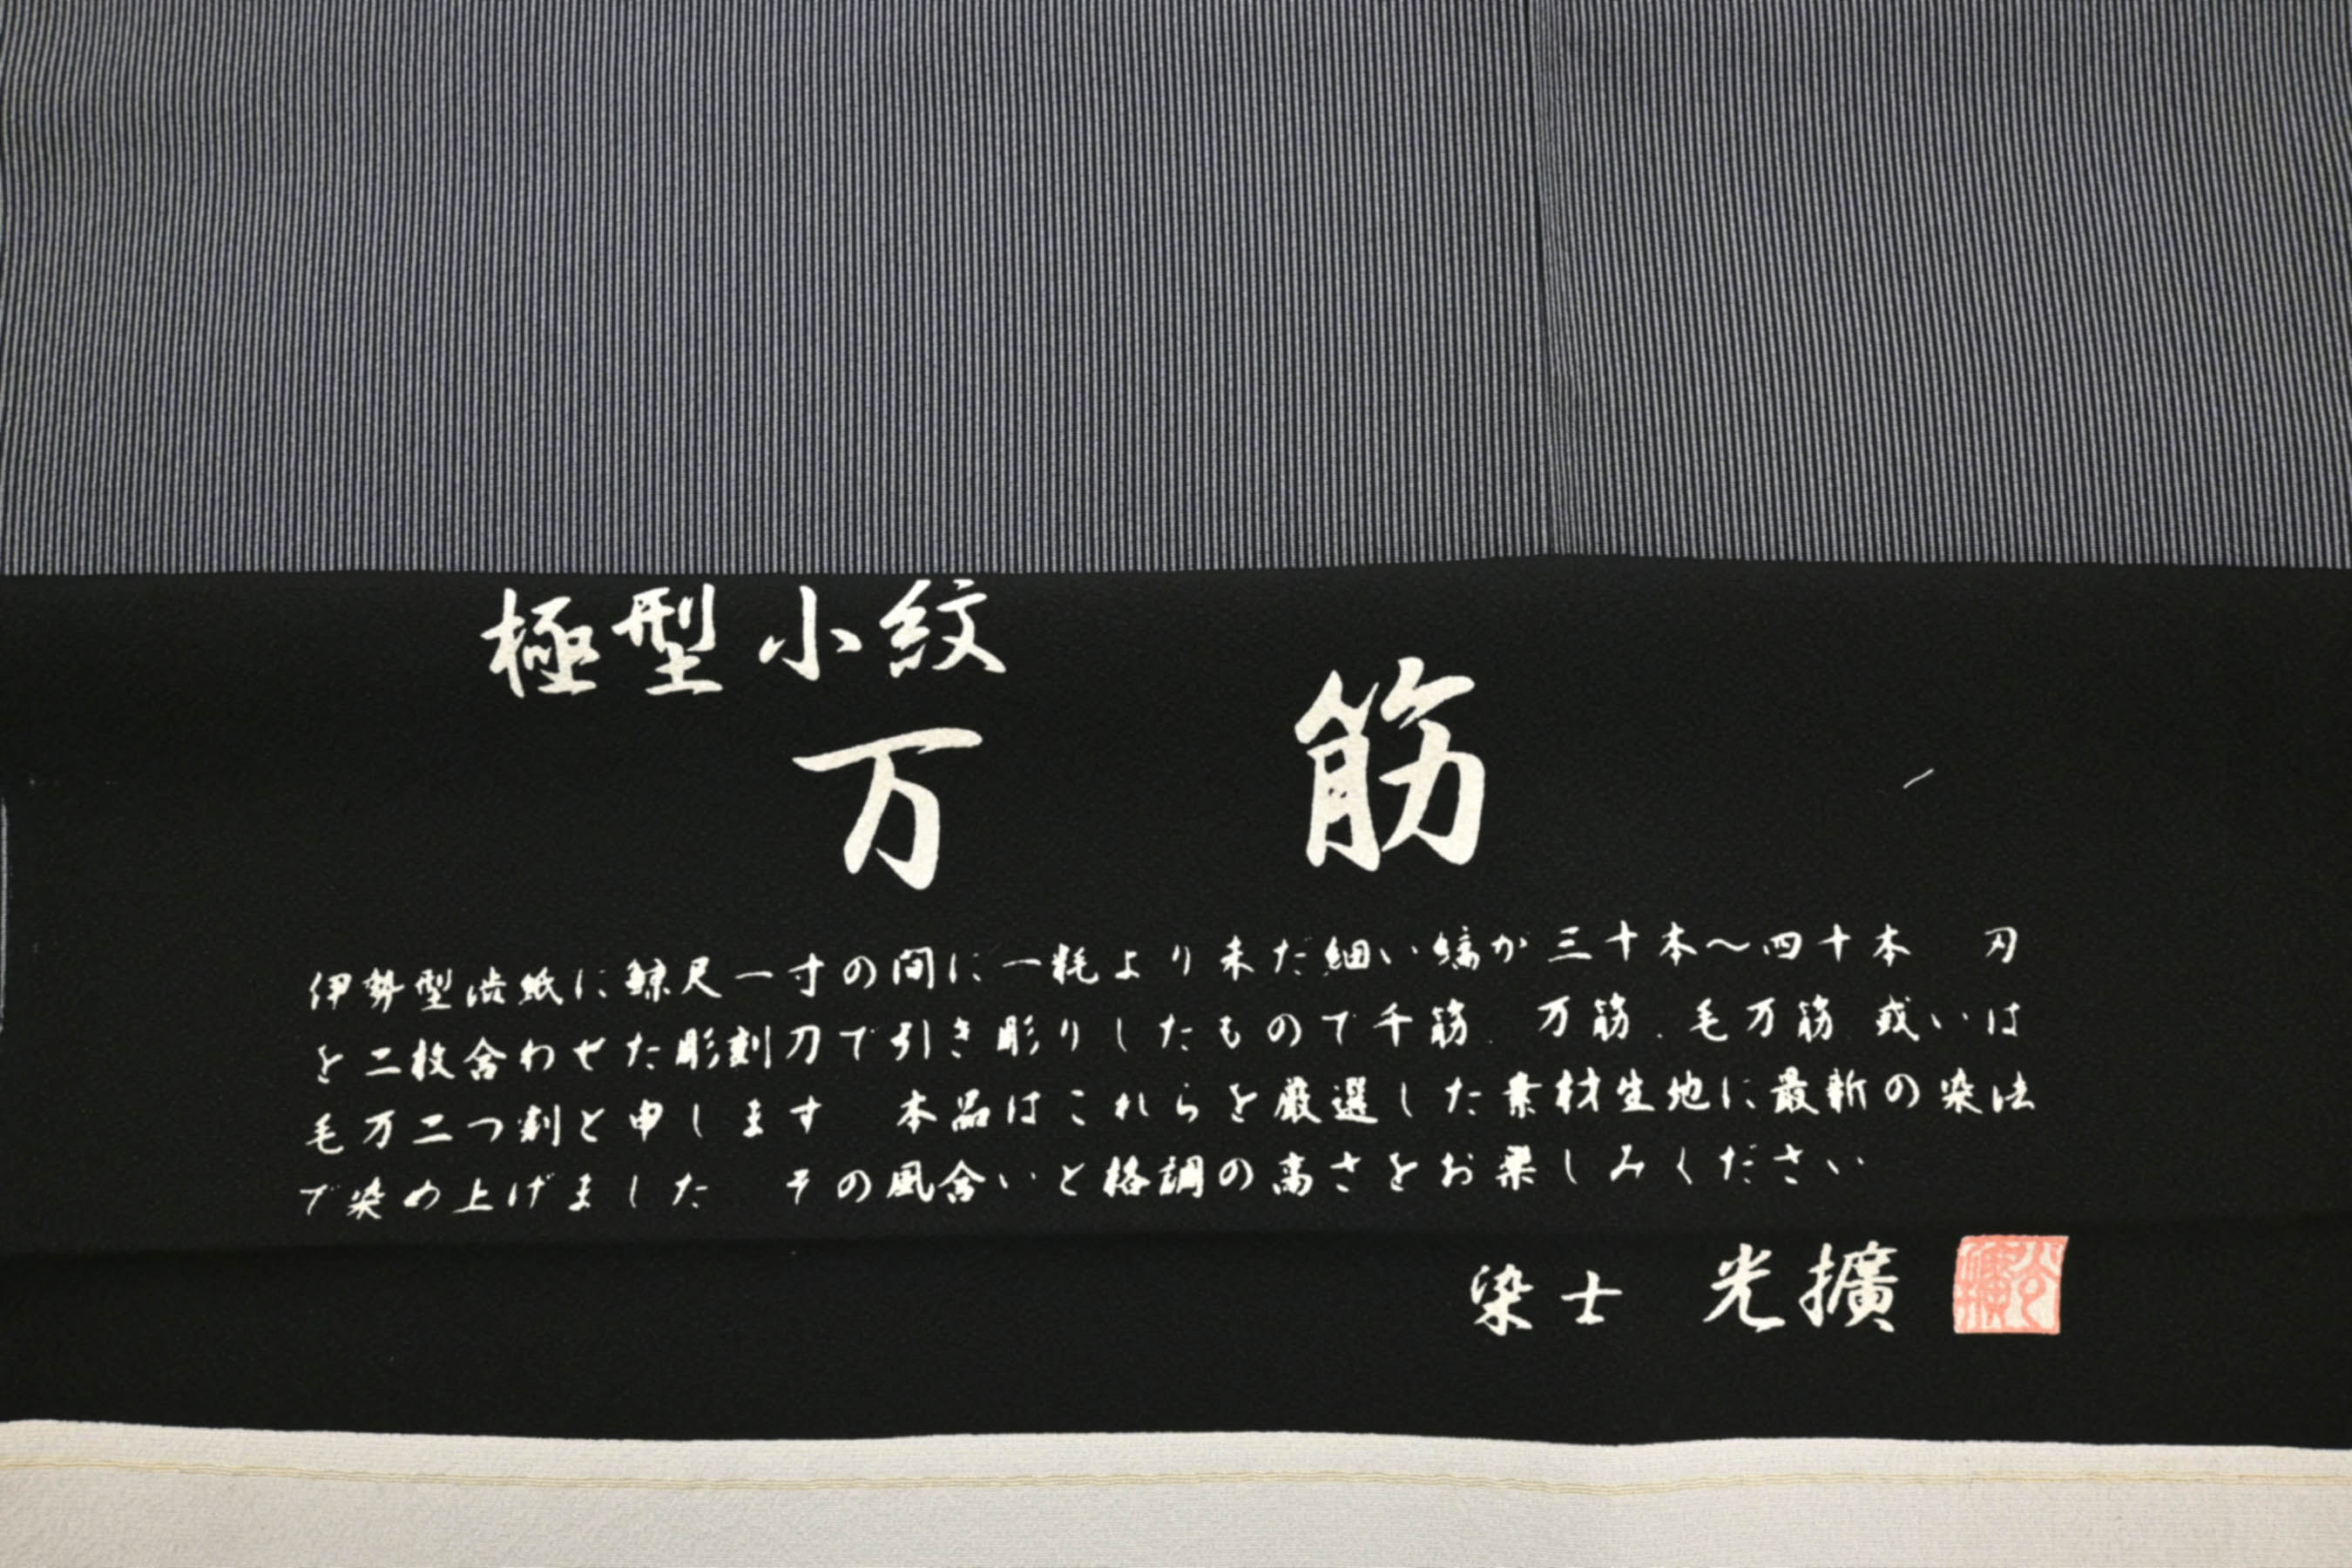 極型小紋
万筋
伊勢型渋紙に鯨尺一寸の間に一粍より未だ細い縞が三十本～四十本 刃
を二枚合わせた彫刻刀で引き彫りしたもので千筋、万筋、毛万筋 或いは
毛万二つ割と申します 本品はこれらを厳選した素材生地に最新の染法
で染め上げました その風合いと格調の高さをお楽しみください
染士 光擴